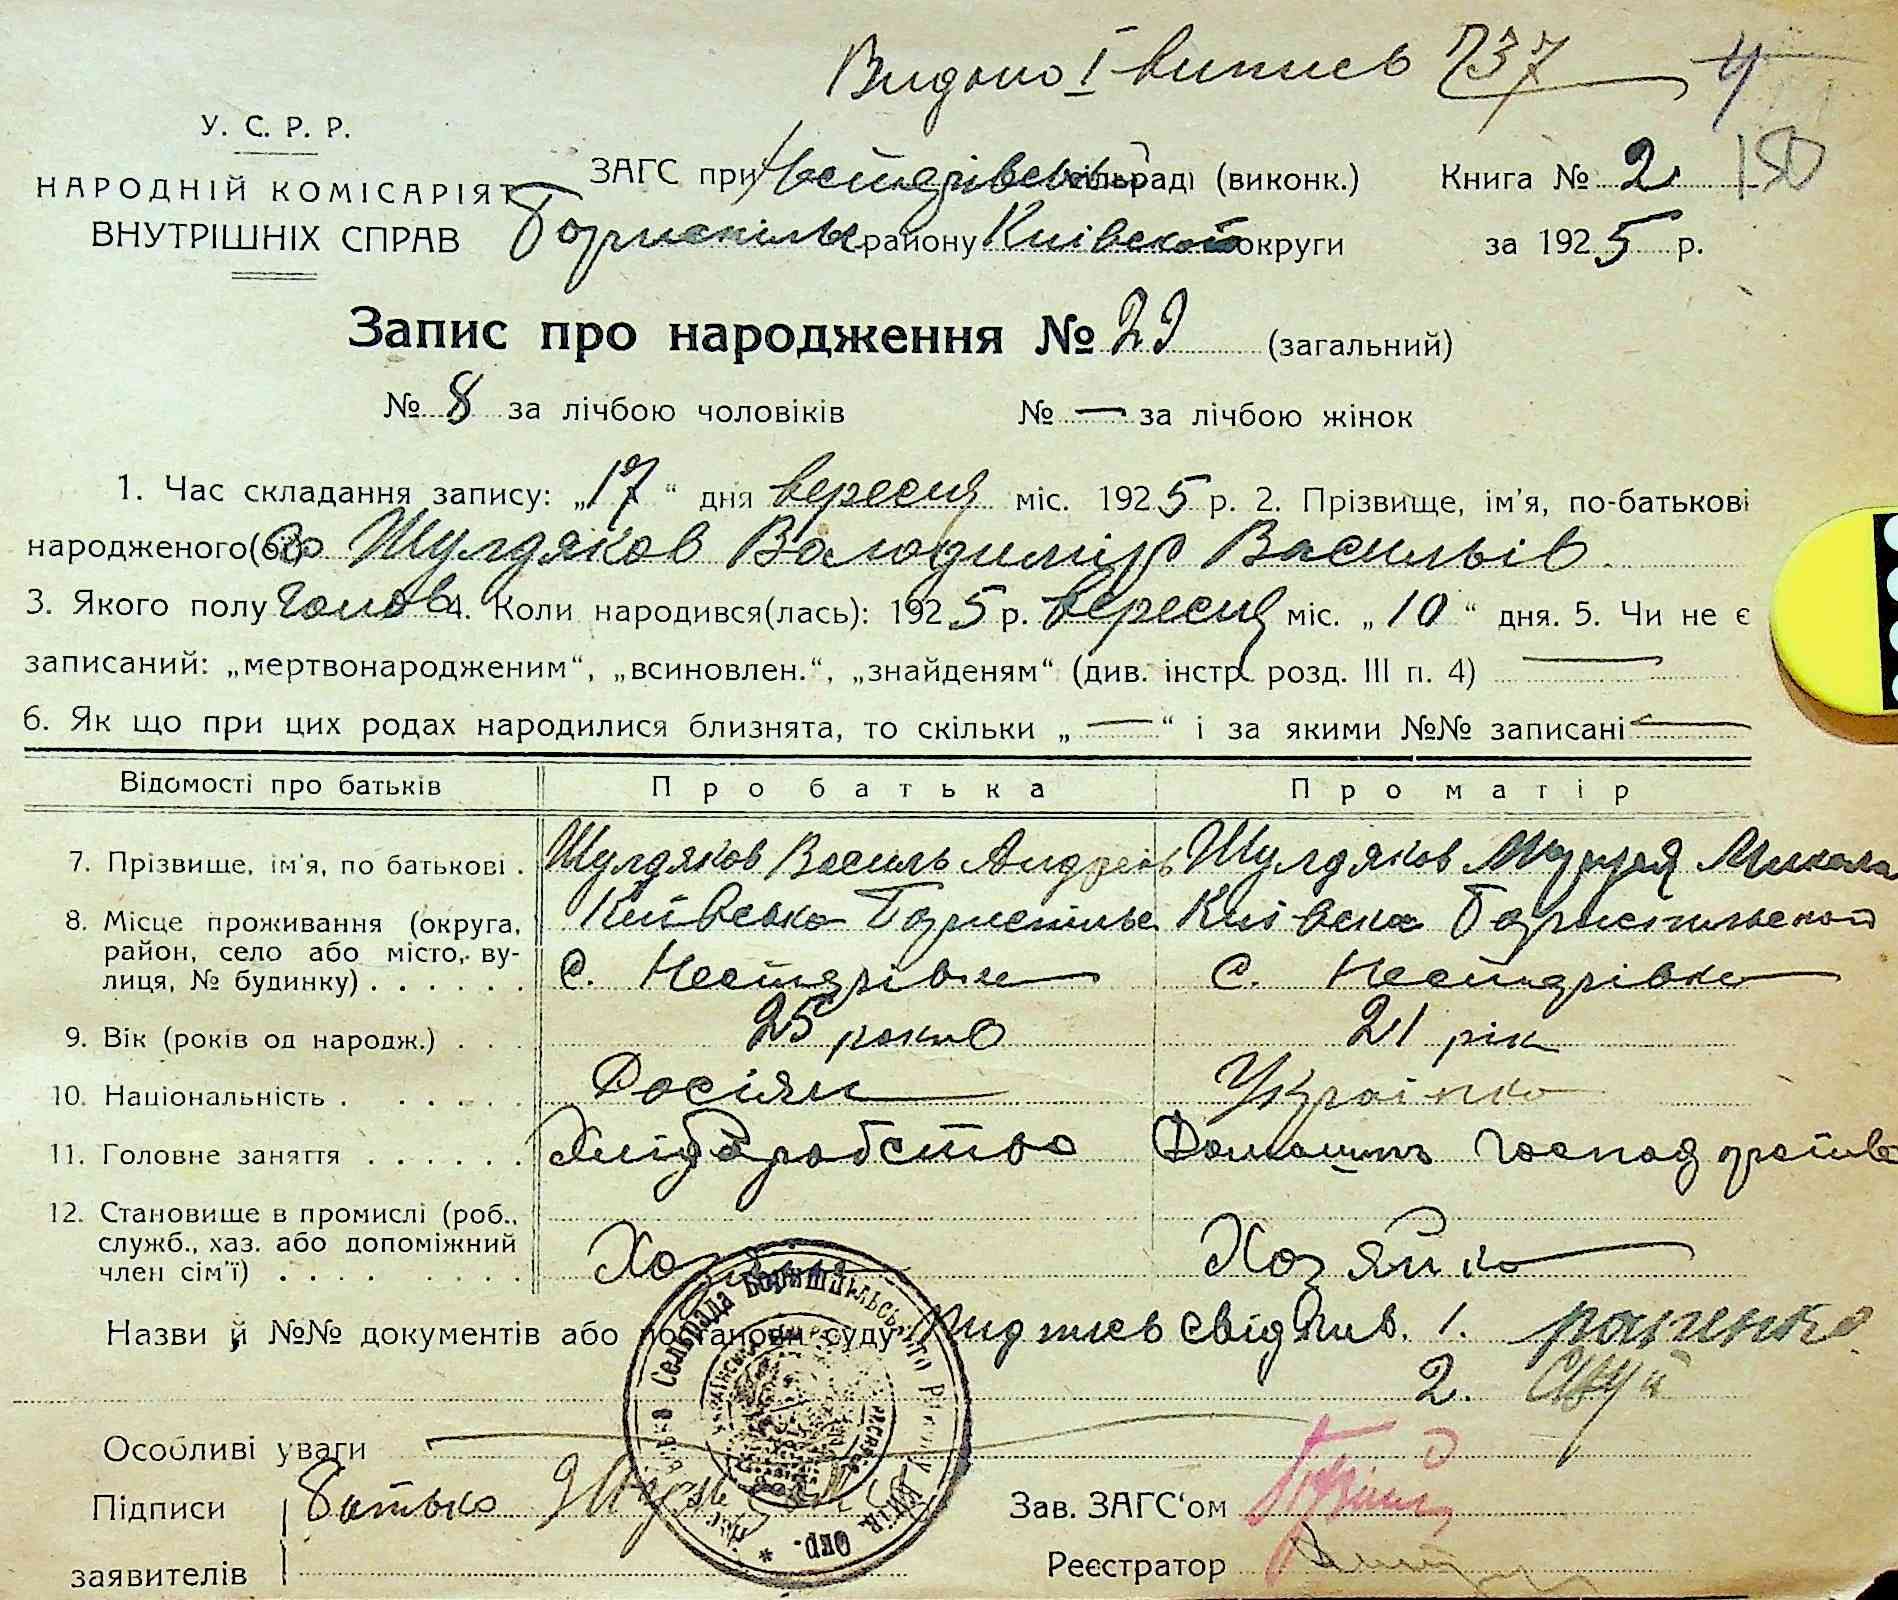 Видано I випись 737 4
У. С. Р. Р.
150
НАРОДНІЙ КОМІСАРІЯТ
ВНУТРІШНІХ СПРАВ
ЗАГС при сільраді (виконк.) Книга № 2
Бориспільск району Київской округи за 1925 р.
Запис про народження № 22 (загальний)
№ 8 за лічбою чоловіків № — за лічбою жінок
1. Час складання запису: „17“ дня вересня міс. 1925 р. 2. Прізвище, ім'я, по-батькові
народженого(ої) Шулдяков Володимір Васильів
3. Якого полу чолов 4. Коли народився(лась): 1925 р. вересня міс. „10“ дня. 5. Чи не є
записаний: „мертвонародженим“, „всиновлен.“, „знайденям“ (див. інстр. розд. III п. 4) —
6. Як що при цих родах народилися близнята, то скільки „—“ і за якими №№ записані —
Відомості про батьків Про батька Про матір
7. Прізвище, ім'я, по батькові . Шулдяков Василь Андреів Шулдяков Микола
8. Місце проживання (округа, Київсько Бориспільс Київска Бориспільской
район, село або місто, ву-
лиця, № будинку) . . . . . . с. Нестярівка с. Нестярівка
9. Вік (років од народж.) . . . 25 років 21 рік
10. Національність . . . . . . Росіян Украінка
11. Головне заняття . . . . . . Хлібаробство Домашнь господарство
12. Становище в промислі (роб.,
служб., хаз. або допоміжний
член сім'ї) . . . . . . . . Хозяін Хозяйка
Назви й №№ документів або постанови суду Підпись свідків. 1.
2.
Особливі уваги —
Підписи Батько
Зав. ЗАГС‘ом
заявителів
Реєстратор
Сельрада Бориспільського Району Київ. Окр.